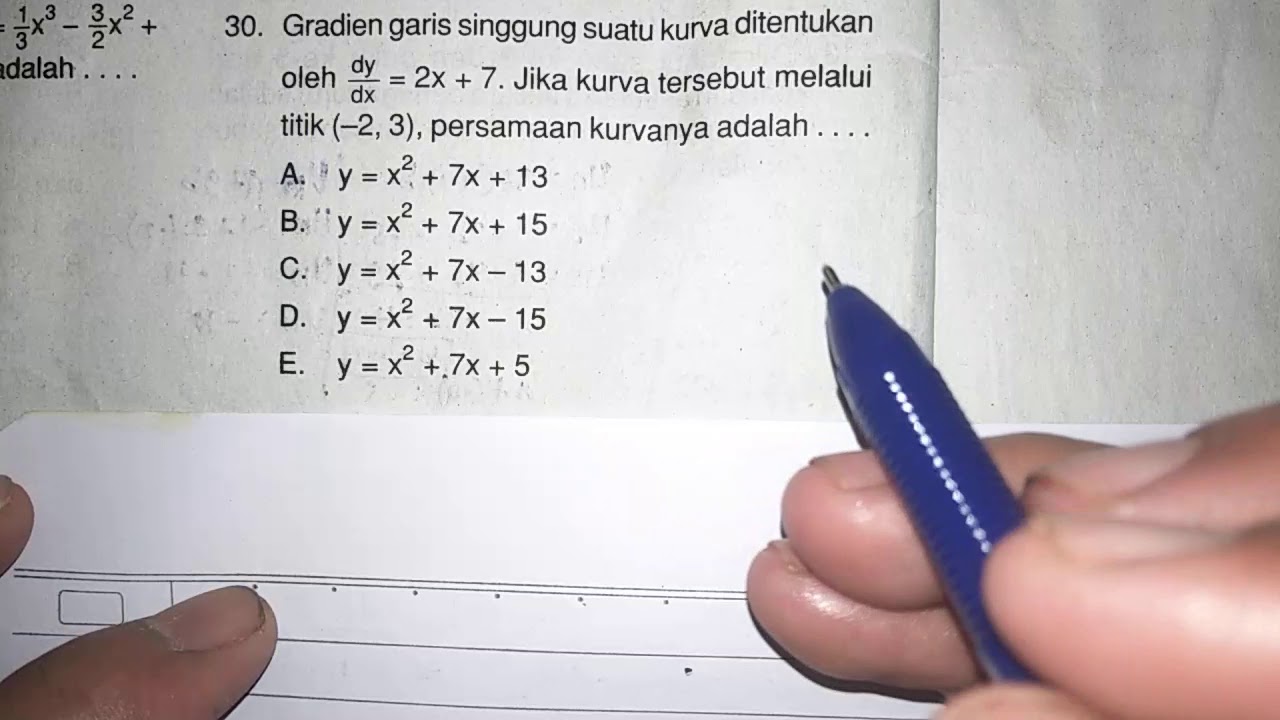 = 1/3x³ – 3/2x² +
adalah . . . .
30. Gradien garis singgung suatu kurva ditentukan
oleh dy/dx = 2x + 7. Jika kurva tersebut melalui
titik (–2, 3), persamaan kurvanya adalah . . . .
A. y = x² + 7x + 13
B. y = x² + 7x + 15
C. y = x² + 7x – 13
D. y = x² + 7x – 15
E. y = x² + 7x + 5